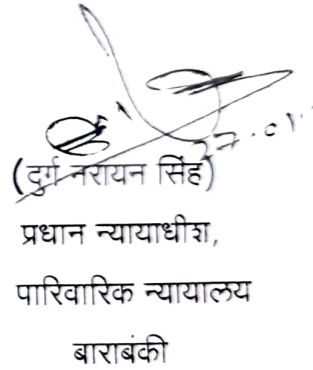 (दुर्ग नरायन सिंह)
प्रधान न्यायाधीश,
पारिवारिक न्यायालय
बाराबंकी